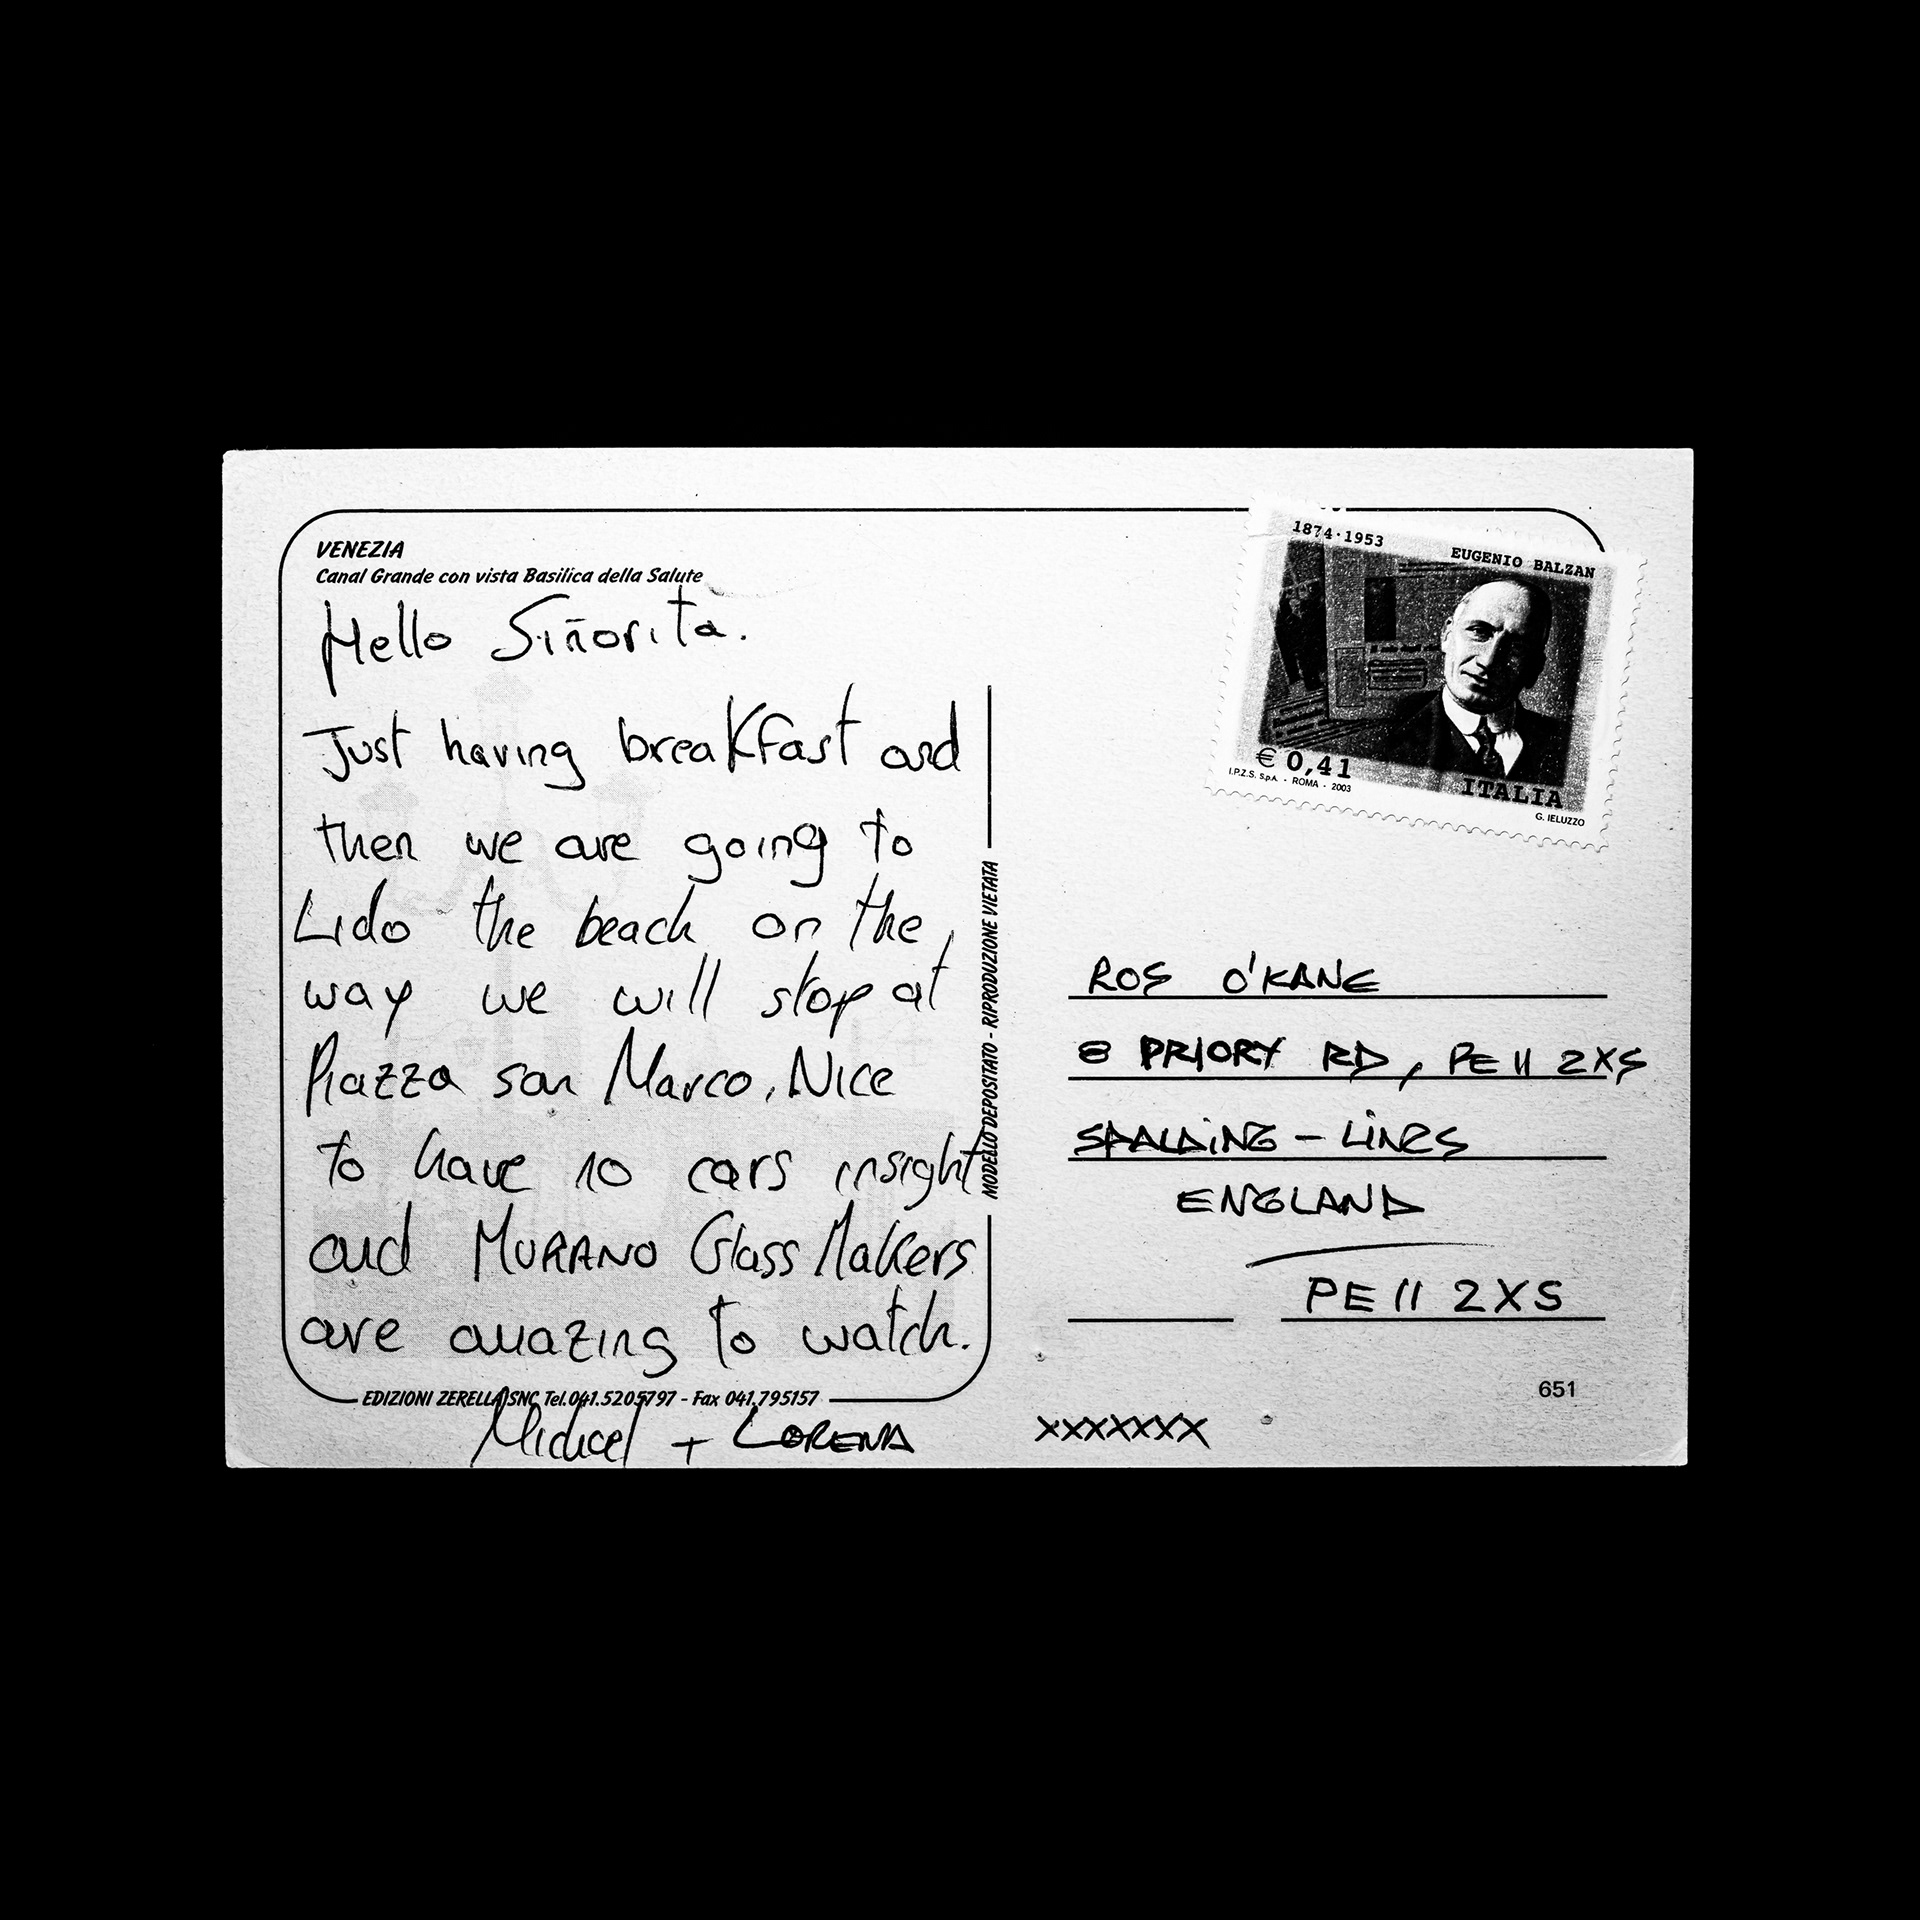 VENEZIA
Canal Grande con vista Basilica della Salute
Hello Siñorita.
Just having breakfast and
then we are going to
Lido the beach on the
way we will stop at
Piazza san Marco, Nice
to have no cars insight
and MURANO Glass Makers
are amazing to watch.
EDIZIONI ZERELLA SNC Tel.041.5205797 - Fax 041.795157
Michael + LORENA
MODELLO DEPOSITATO - RIPRODUZIONE VIETATA
1874·1953
EUGENIO BALZAN
€ 0,41
ITALIA
I.P.Z.S. S.p.A. - ROMA - 2003
G. IELUZZO
ROS O'KANE
8 PRIORY RD, PE11 2XS
SPALDING - LINCS
ENGLAND
PE11 2XS
651
xxxxxxx